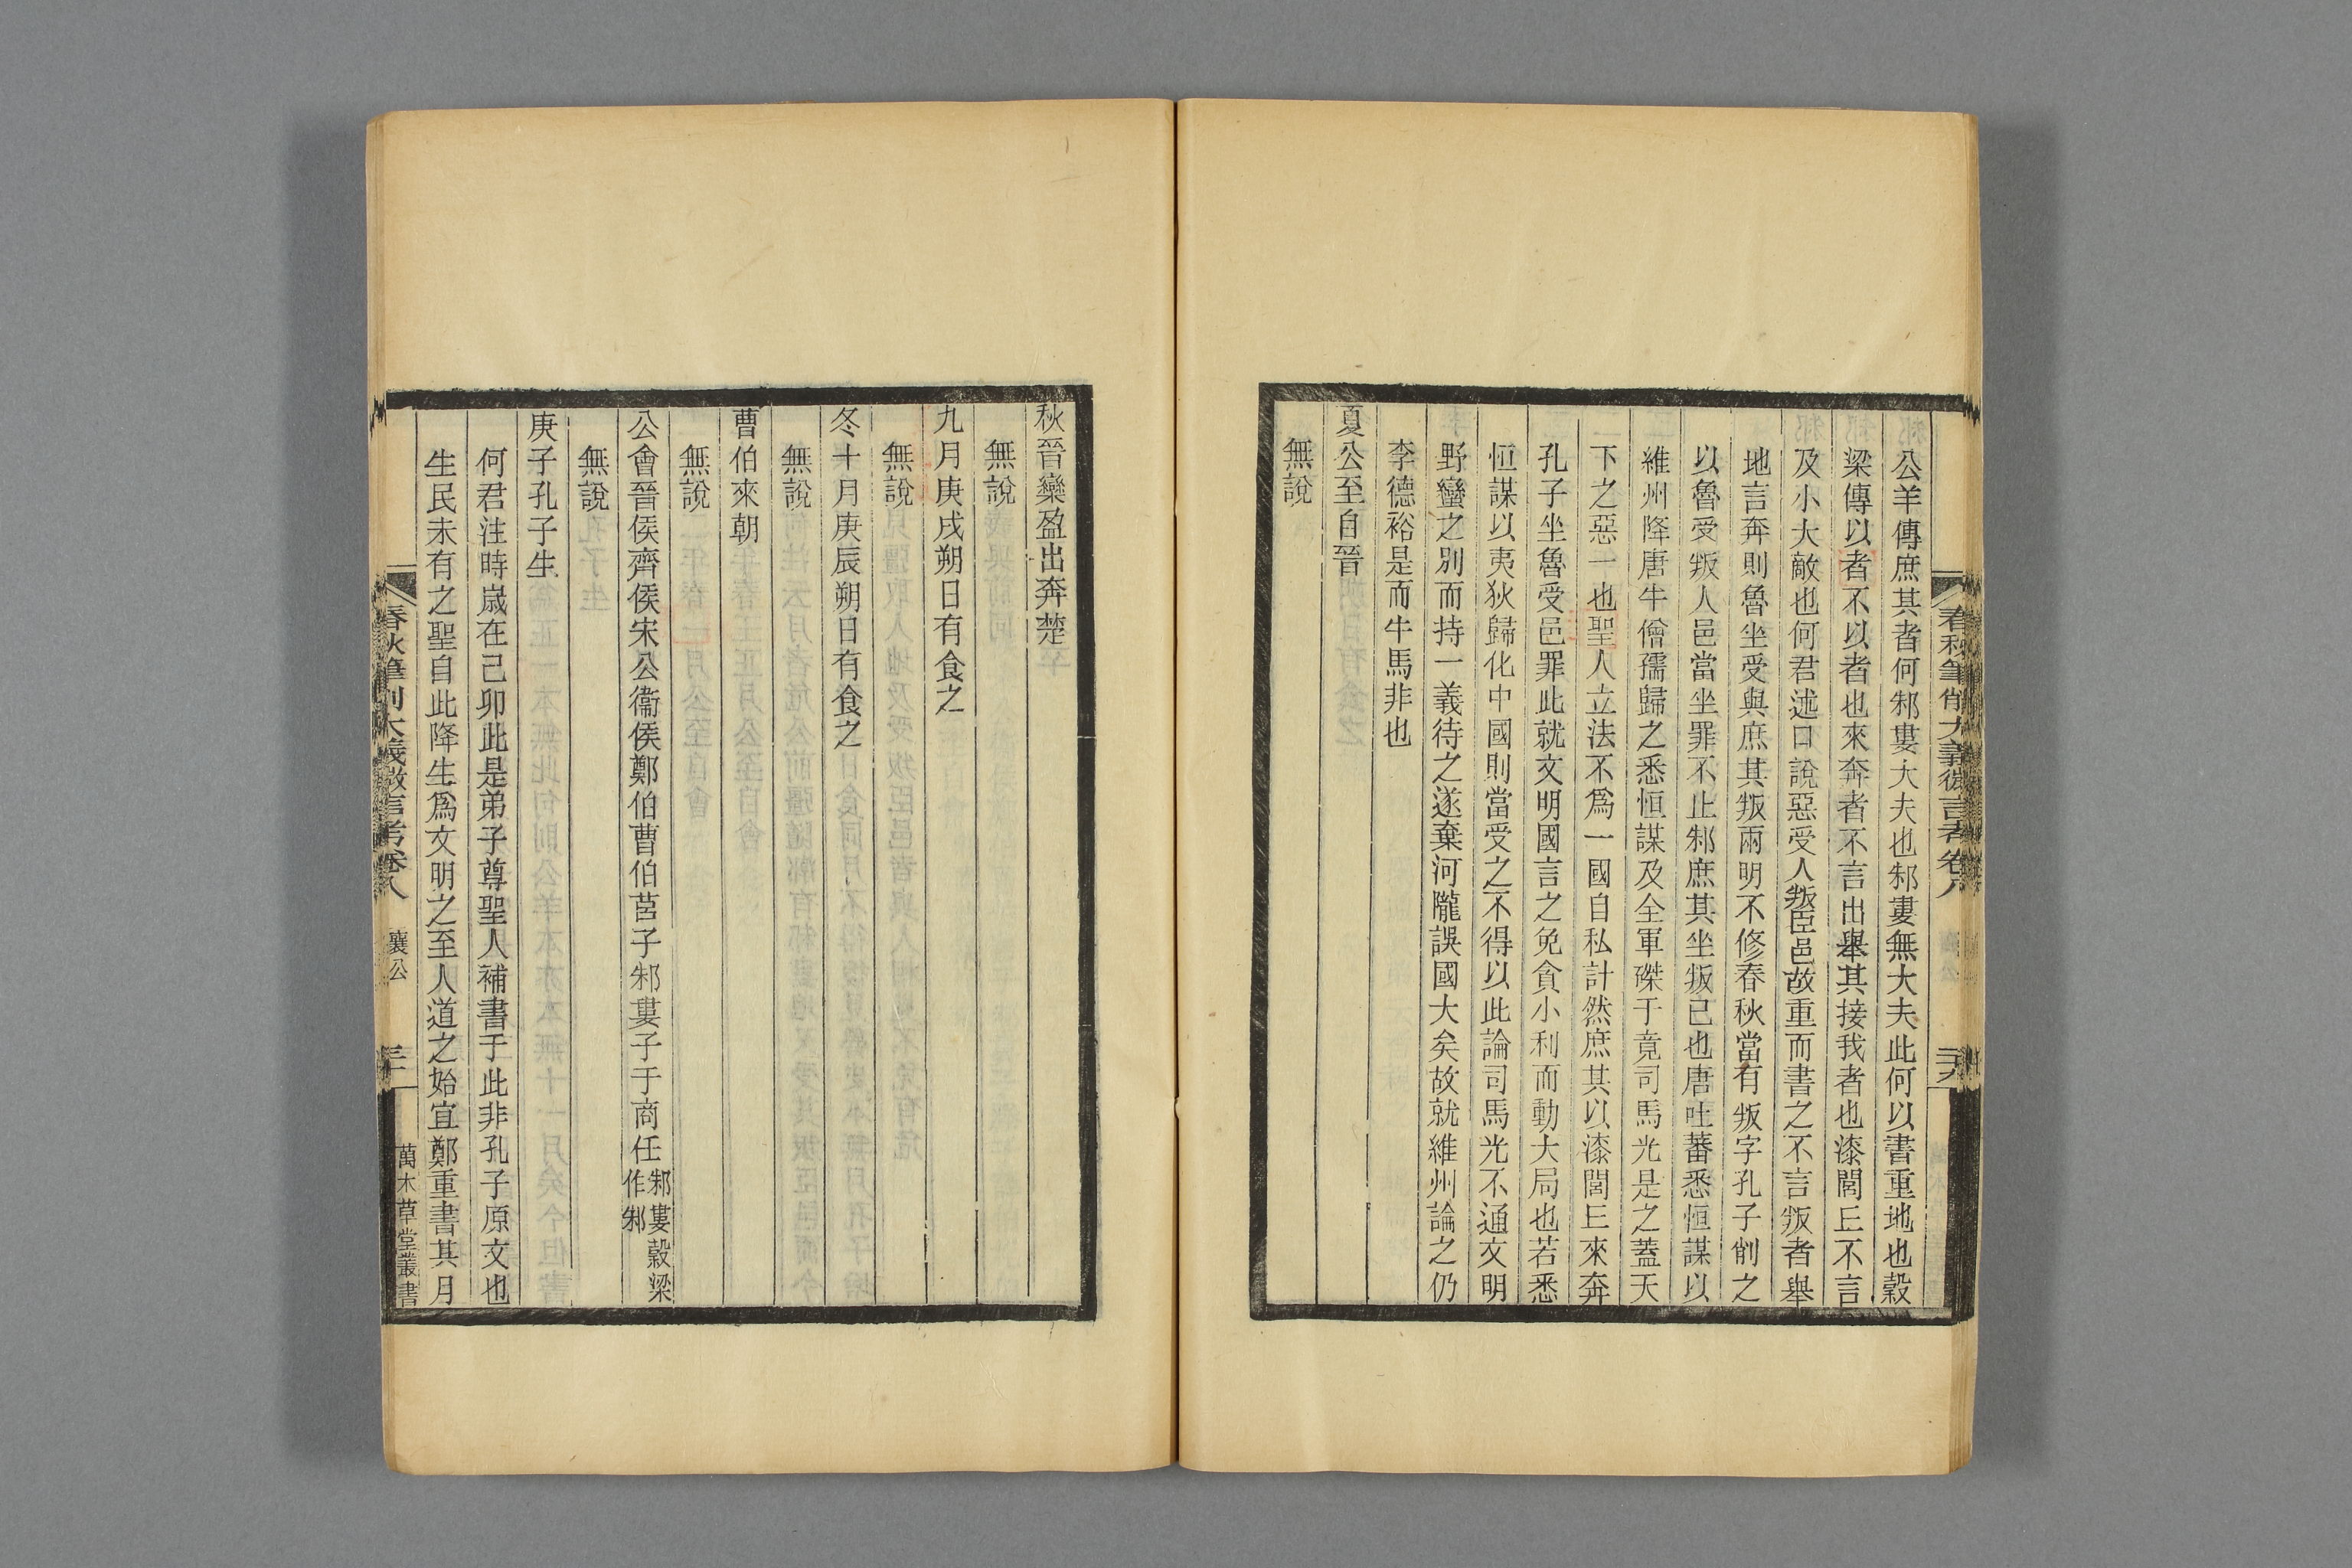 春秋筆削大義微言考卷八
公羊傳庶其者何邾婁大夫也邾婁無大夫此何以書重地也穀
梁傳以者不以者也來奔者不言出舉其接我者也漆閭丘不言
及小大敵也何君述口說惡受人叛臣邑故重而書之不言叛者舉
地言奔則魯坐受與庶其叛兩明不修春秋當有叛字孔子削之
以魯受叛人邑當坐罪不止邾庶其坐叛已也唐吐蕃悉恒謀以
維州降唐牛僧孺歸之悉恒謀及全軍磔于竟司馬光是之蓋天
下之惡一也聖人立法不為一國自私計然庶其以漆閭丘來奔
孔子坐魯受邑罪此就文明國言之免貪小利而動大局也若悉
恒謀以夷狄歸化中國則當受之不得以此論司馬光不通文明
野蠻之別而持一義待之遂棄河隴誤國大矣故就維州論之仍
李德裕是而牛馬非也
夏公至自晉
無說
秋晉欒盈出奔楚
無說
九月庚戌朔日有食之
無說
冬十月庚辰朔日有食之
無說
曹伯來朝
無說
公會晉侯齊侯宋公衞侯鄭伯曹伯莒子邾婁子于商任邾婁穀梁
作邾
無說
庚子孔子生
何君注時歲在己卯此是弟子尊聖人補書于此非孔子原文也
生民未有之聖自此降生為文明之至人道之始宜鄭重書其月
春秋筆削大義微言考卷八 襄公
萬木草堂叢書